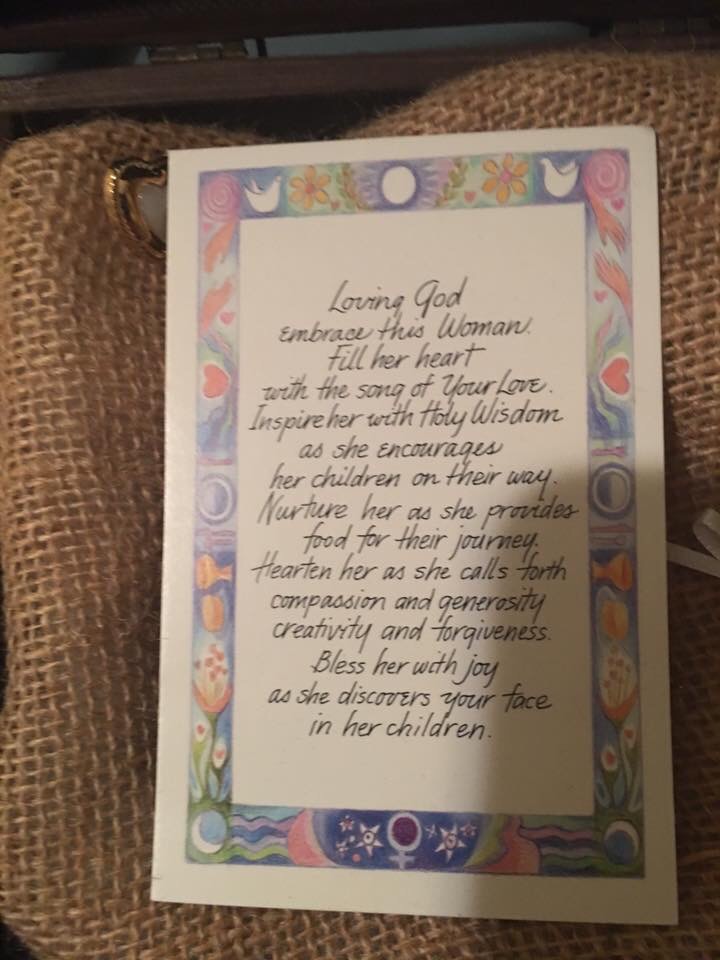 Loving God
embrace this Woman.
Fill her heart
with the song of Your Love.
Inspire her with Holy Wisdom
as she encourages
her children on their way.
Nurture her as she provides
food for their journey.
Hearten her as she calls forth
compassion and generosity
creativity and forgiveness.
Bless her with joy
as she discovers your face
in her children.